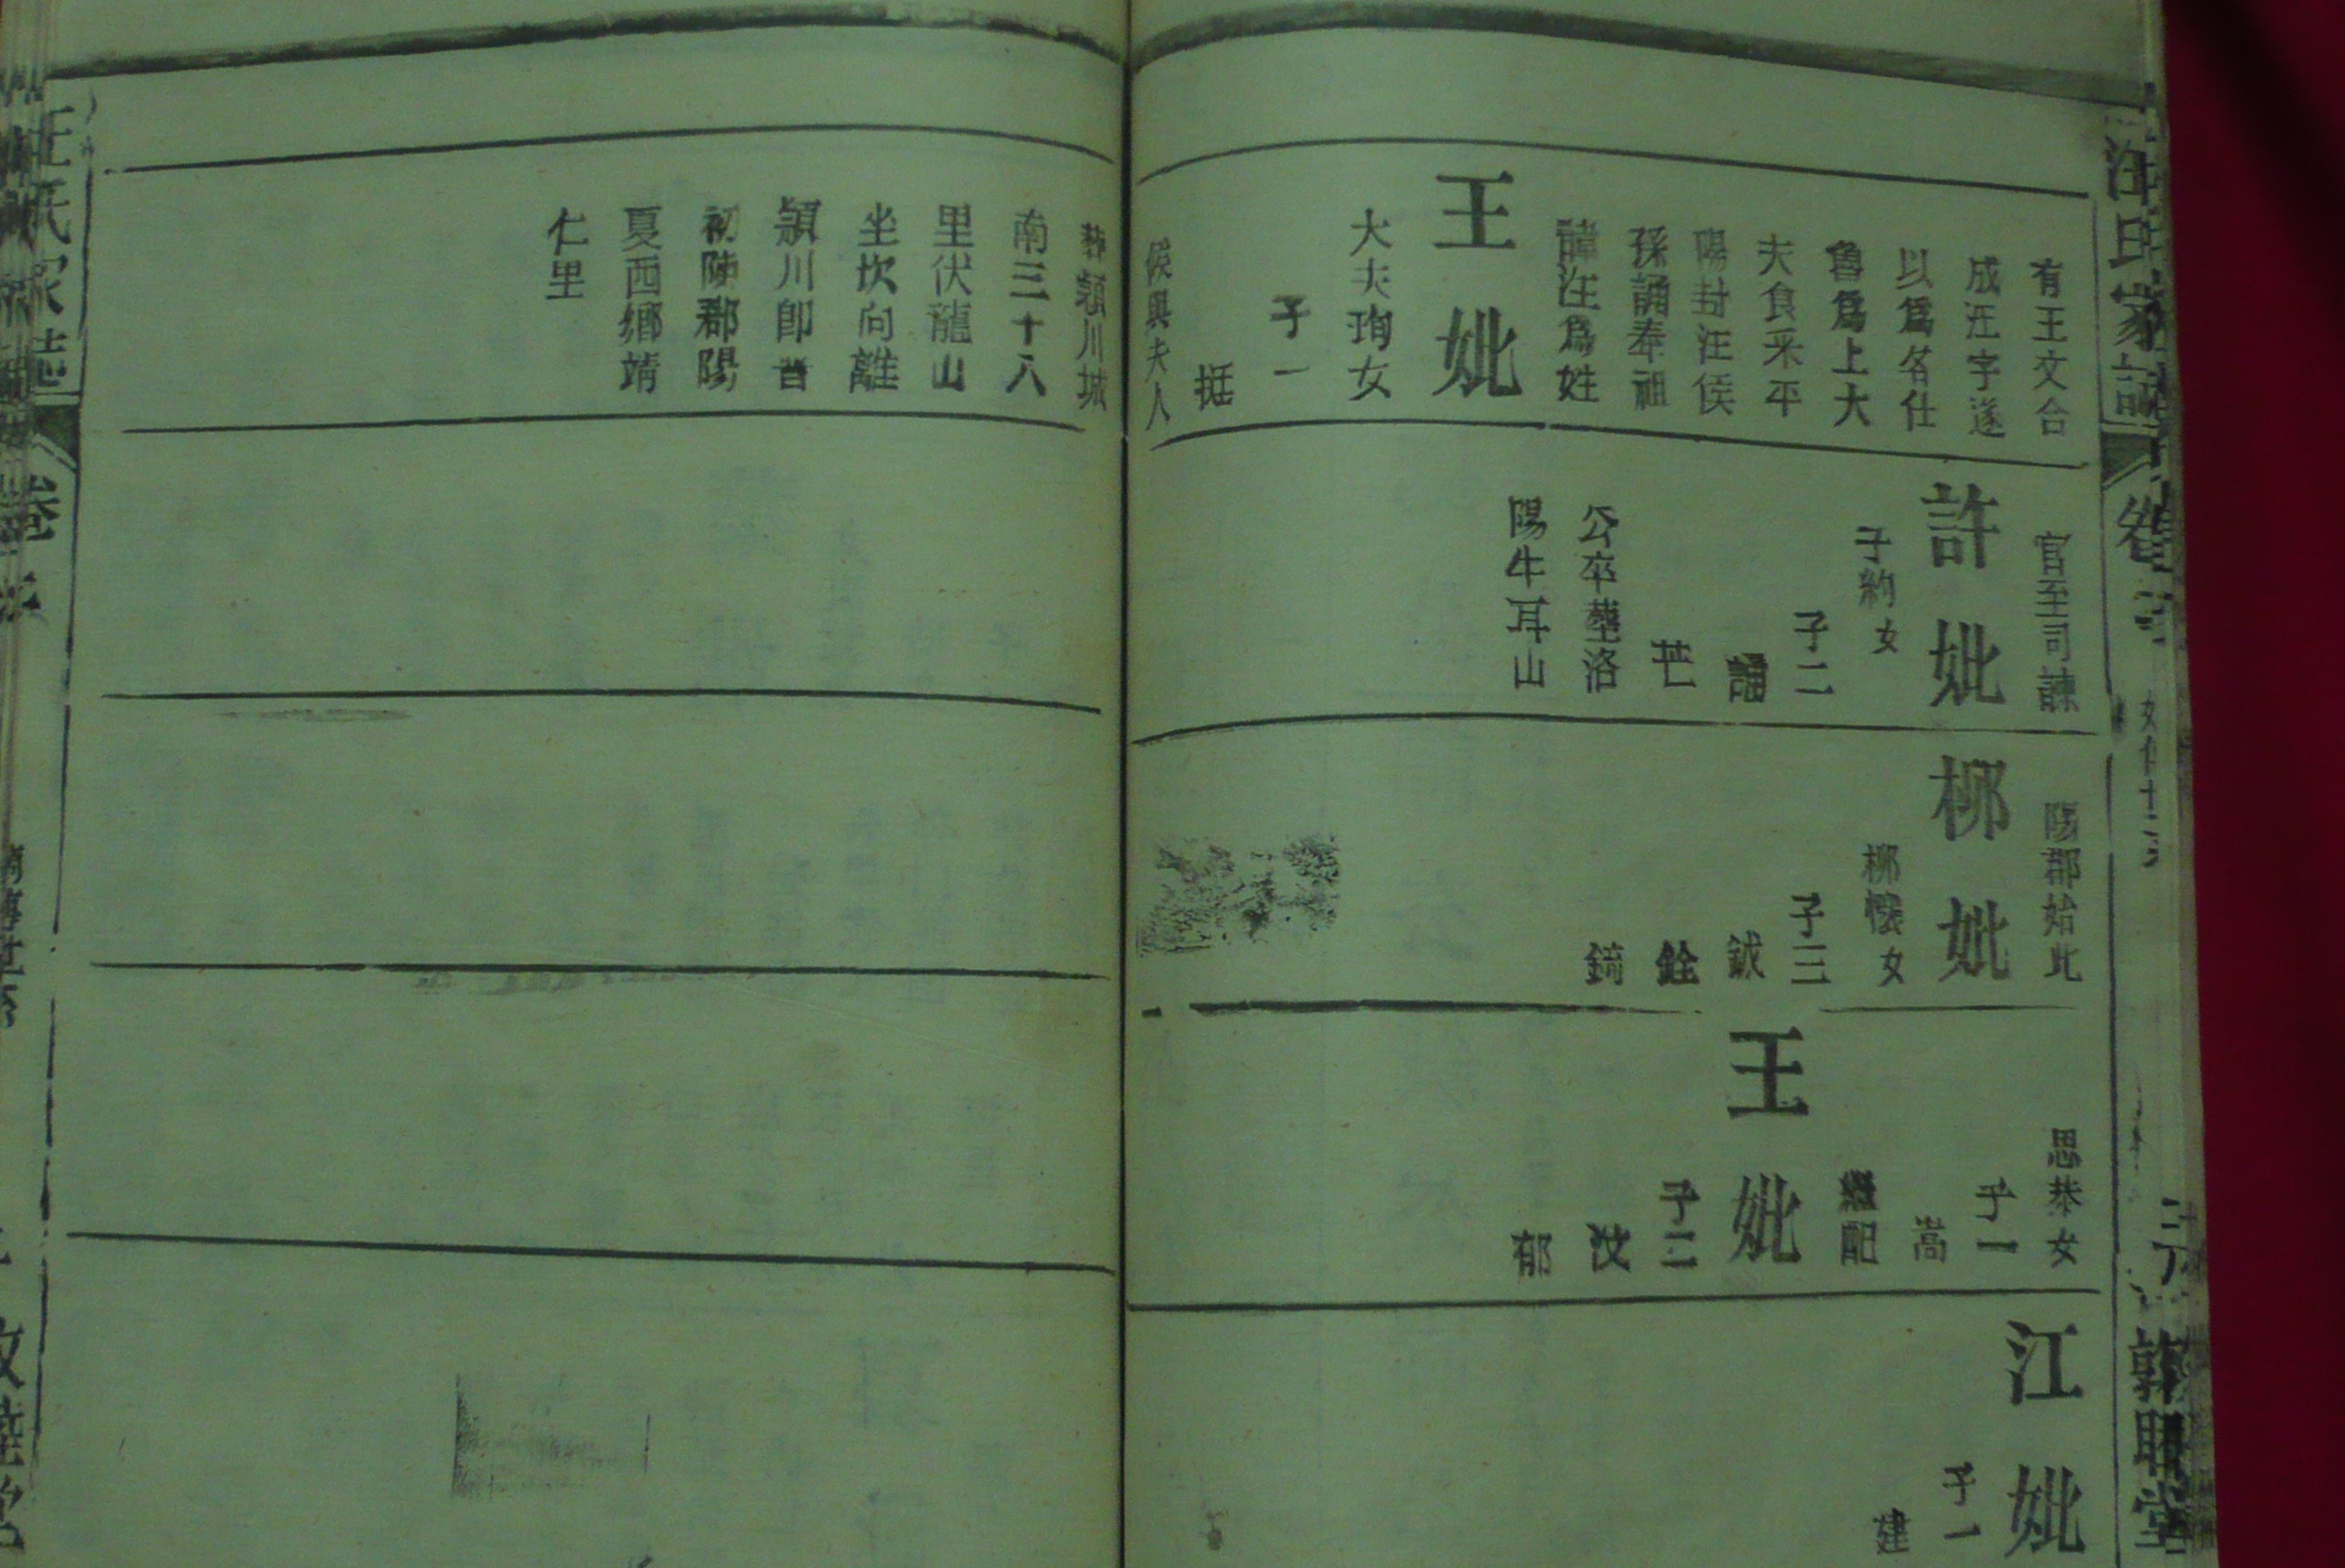 汪氏家譜
有王文合
成汪字遂
以爲名仕
魯爲上大
夫食采平
陽封汪侯
孫誦奉祖
諱汪爲姓
王妣
大夫珣女
子一
挺
侯與夫人
葬潁川城
南三十八
里伏龍山
坐坎向離
潁川卽晋
初陳郡陽
夏西鄉靖
仁里
官至司諫
許妣
子約女
子二
誦
芒
公卒塟洛
陽牛耳山
陽郡始此
柳妣
柳懷女
子三
鉞
銓
錡
思恭女
子一
嵩
繼配
王妣
子二
汶
郁
江妣
子一
建